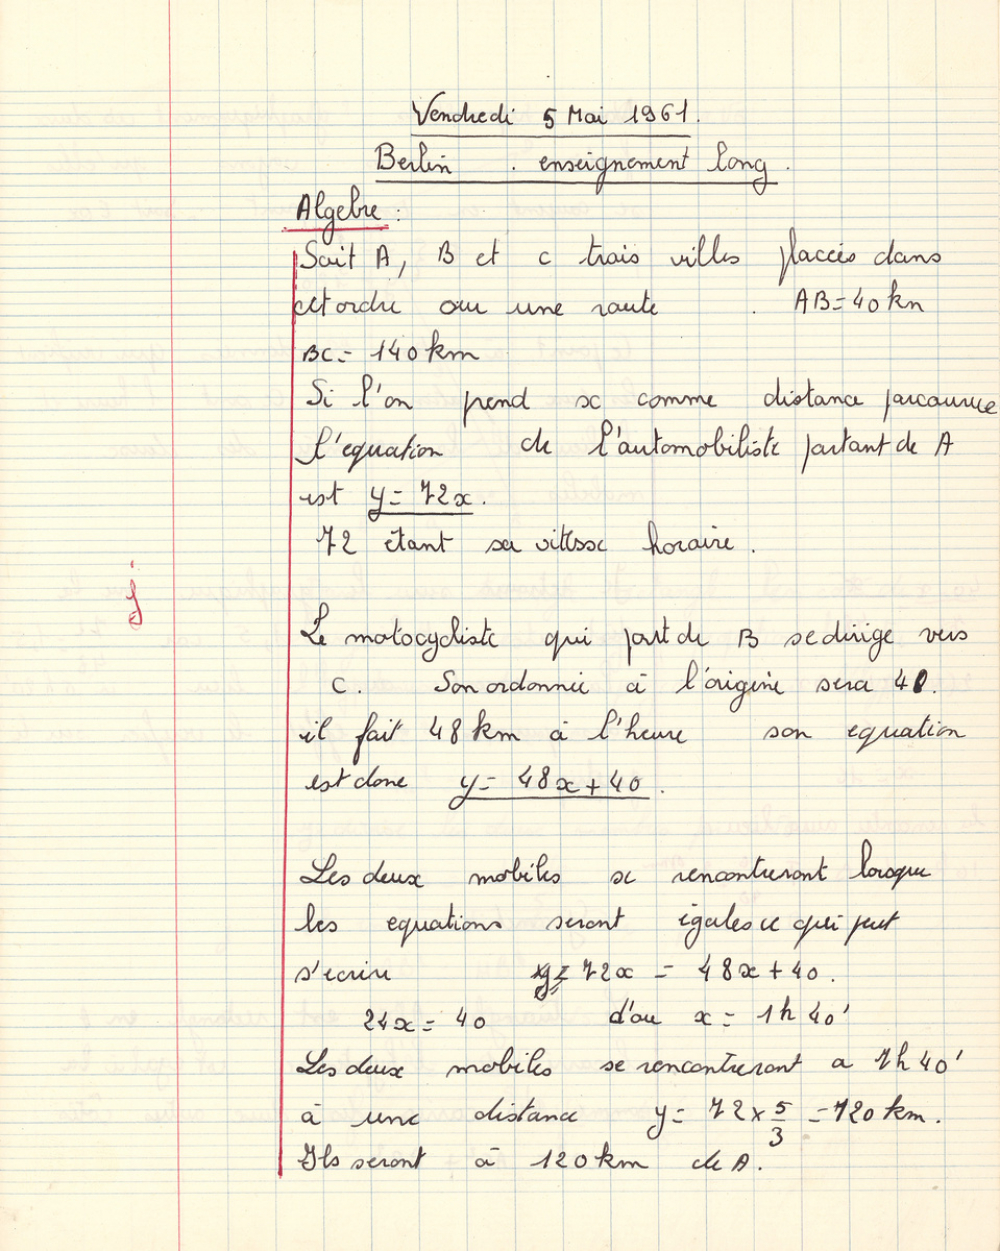 Vendredi 5 Mai 1961.
Berlin . enseignement long .
Algebre :
Soit A, B et C trois villes placées dans
cet ordre sur une route . AB = 40 km
BC = 140 km
Si l'on prend x comme distance parcourue
l'equation de l'automobiliste partant de A
est y = 72x.
72 étant sa vitesse horaire .
Le motocycliste qui part de B se dirige vers
C. Son ordonnée à l'origine sera 40.
il fait 48 km à l'heure son equation
est donc y = 48x + 40 .
Les deux mobiles se rencontreront lorsque
les equations seront égales ce qui peut
s'ecrire 72x = 48x + 40.
24x = 40 d'ou x = 1h 40'
Les deux mobiles se rencontreront a 1h 40'
à une distance y = 72 x 5/3 = 120 km.
Ils seront à 120 km de A.